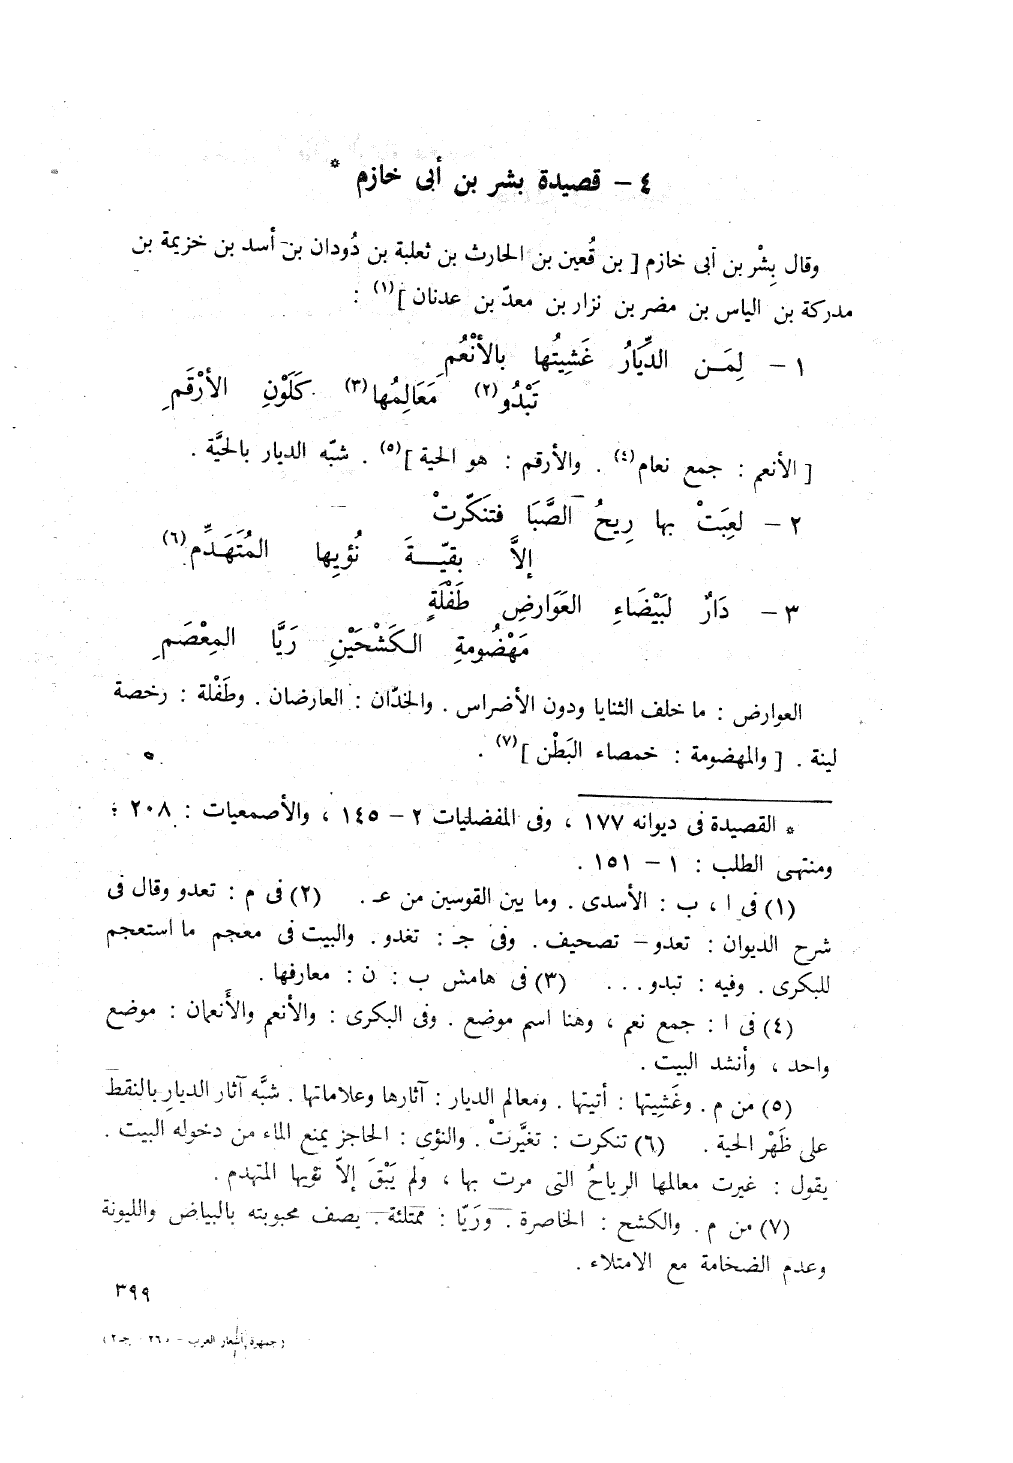 ٤ – قصيدة بشر بن أبى خازم *
وقال بِشْر بن أبى خازم [ بن قُعين بن الحارث بن ثعلبة بن دُودان بن أسد بن خزيمة بن
مدركة بن الياس بن مضر بن نزار بن معدّ بن عدنان ](١) :
١ – لِمَـن الدِّيَارُ غَشِيتُها بالأنْعُمِ
تَبْدُو(٢) مَعَالِمُها(٣) كَلَوْنِ الأرْقَمِ
[ الأنعم : جمع نعام(٤) . والأرقم : هو الحية ](٥) . شبّه الديار بالحيَّة .
٢ – لعِبَتْ بها رِيحُ الصَّبَا فتَنَكّرتْ
إلاَّ بقيّــةَ نُؤيِها المُتَهَدِّم(٦)
٣ – دَارٌ لبَيْضَاءِ العَوَارضِ طَفْلَةٍ
مَهْضُومةِ الكَشْحَيْنِ رَيَّا المِعْصَمِ
العوارض : ما خلف الثنايا ودون الأضراس . والخدّان : العارضان . وطَفْلة : رخصة
لينة . [ والمهضومة : خمصاء البَطْن ](٧) .
* القصيدة فى ديوانه ١٧٧ ، وفى المفضليات ٢ – ١٤٥ ، والأصمعيات : ٢٠٨ ؛
ومنتهى الطلب : ١ – ١٥١ .
(١) فى ا ، ب : الأسدى . وما بين القوسين من عـ . (٢) فى م : تعدو وقال فى
شرح الديوان : تعدو – تصحيف . وفى جـ : تغدو . والبيت فى معجم ما استعجم
للبكرى . وفيه : تبدو . . . (٣) فى هامش ب : ن : معارفها .
(٤) فى ا : جمع نعم ، وهنا اسم موضع . وفى البكرى : والأنعم والأَنعمان : موضع
واحد ، وأنشد البيت .
(٥) من م . وغَشِيتها : أتيتها . ومعالم الديار : آثارها وعلاماتها . شبَّه آثار الديارِ بالنقط
على ظَهْر الحية . (٦) تنكرت : تغيَّرتْ . والنؤى : الحاجز يمنع الماء من دخوله البيت .
يقول : غيرت معالمها الرياحُ التى مرت بها ، ولم يَبْقَ إلاّ نؤيها المتهدم .
(٧) من م . والكشح : الخاصرة . ورَيّا : ممتلئة . يصف محبوبته بالبياض والليونة
وعدم الضخامة مع الامتلاء .
٣٩٩
( جمهرة أشعار العرب – م٢٦ جـ٢ )